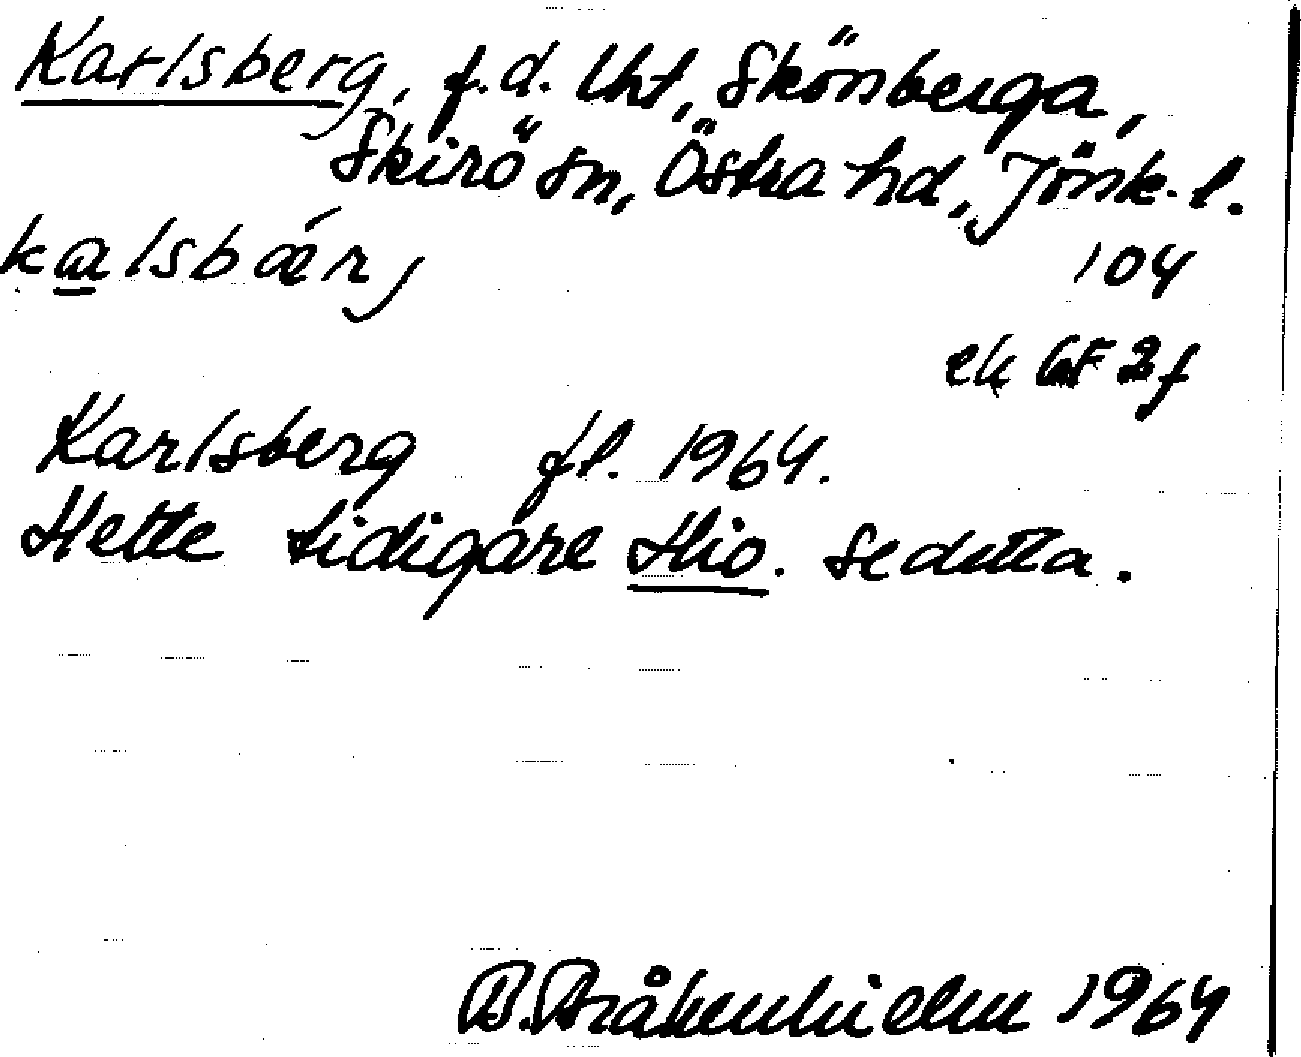 Karlsberg, f.d. lht, Skönberga,
Skirö sn, Östra hd, Jönk. l.
kalsbǽrj
104
ek GF 2f
Karlsberg fl. 1964.
Hette tidigare Hio. se detta.
B. Bråkenhielm 1964